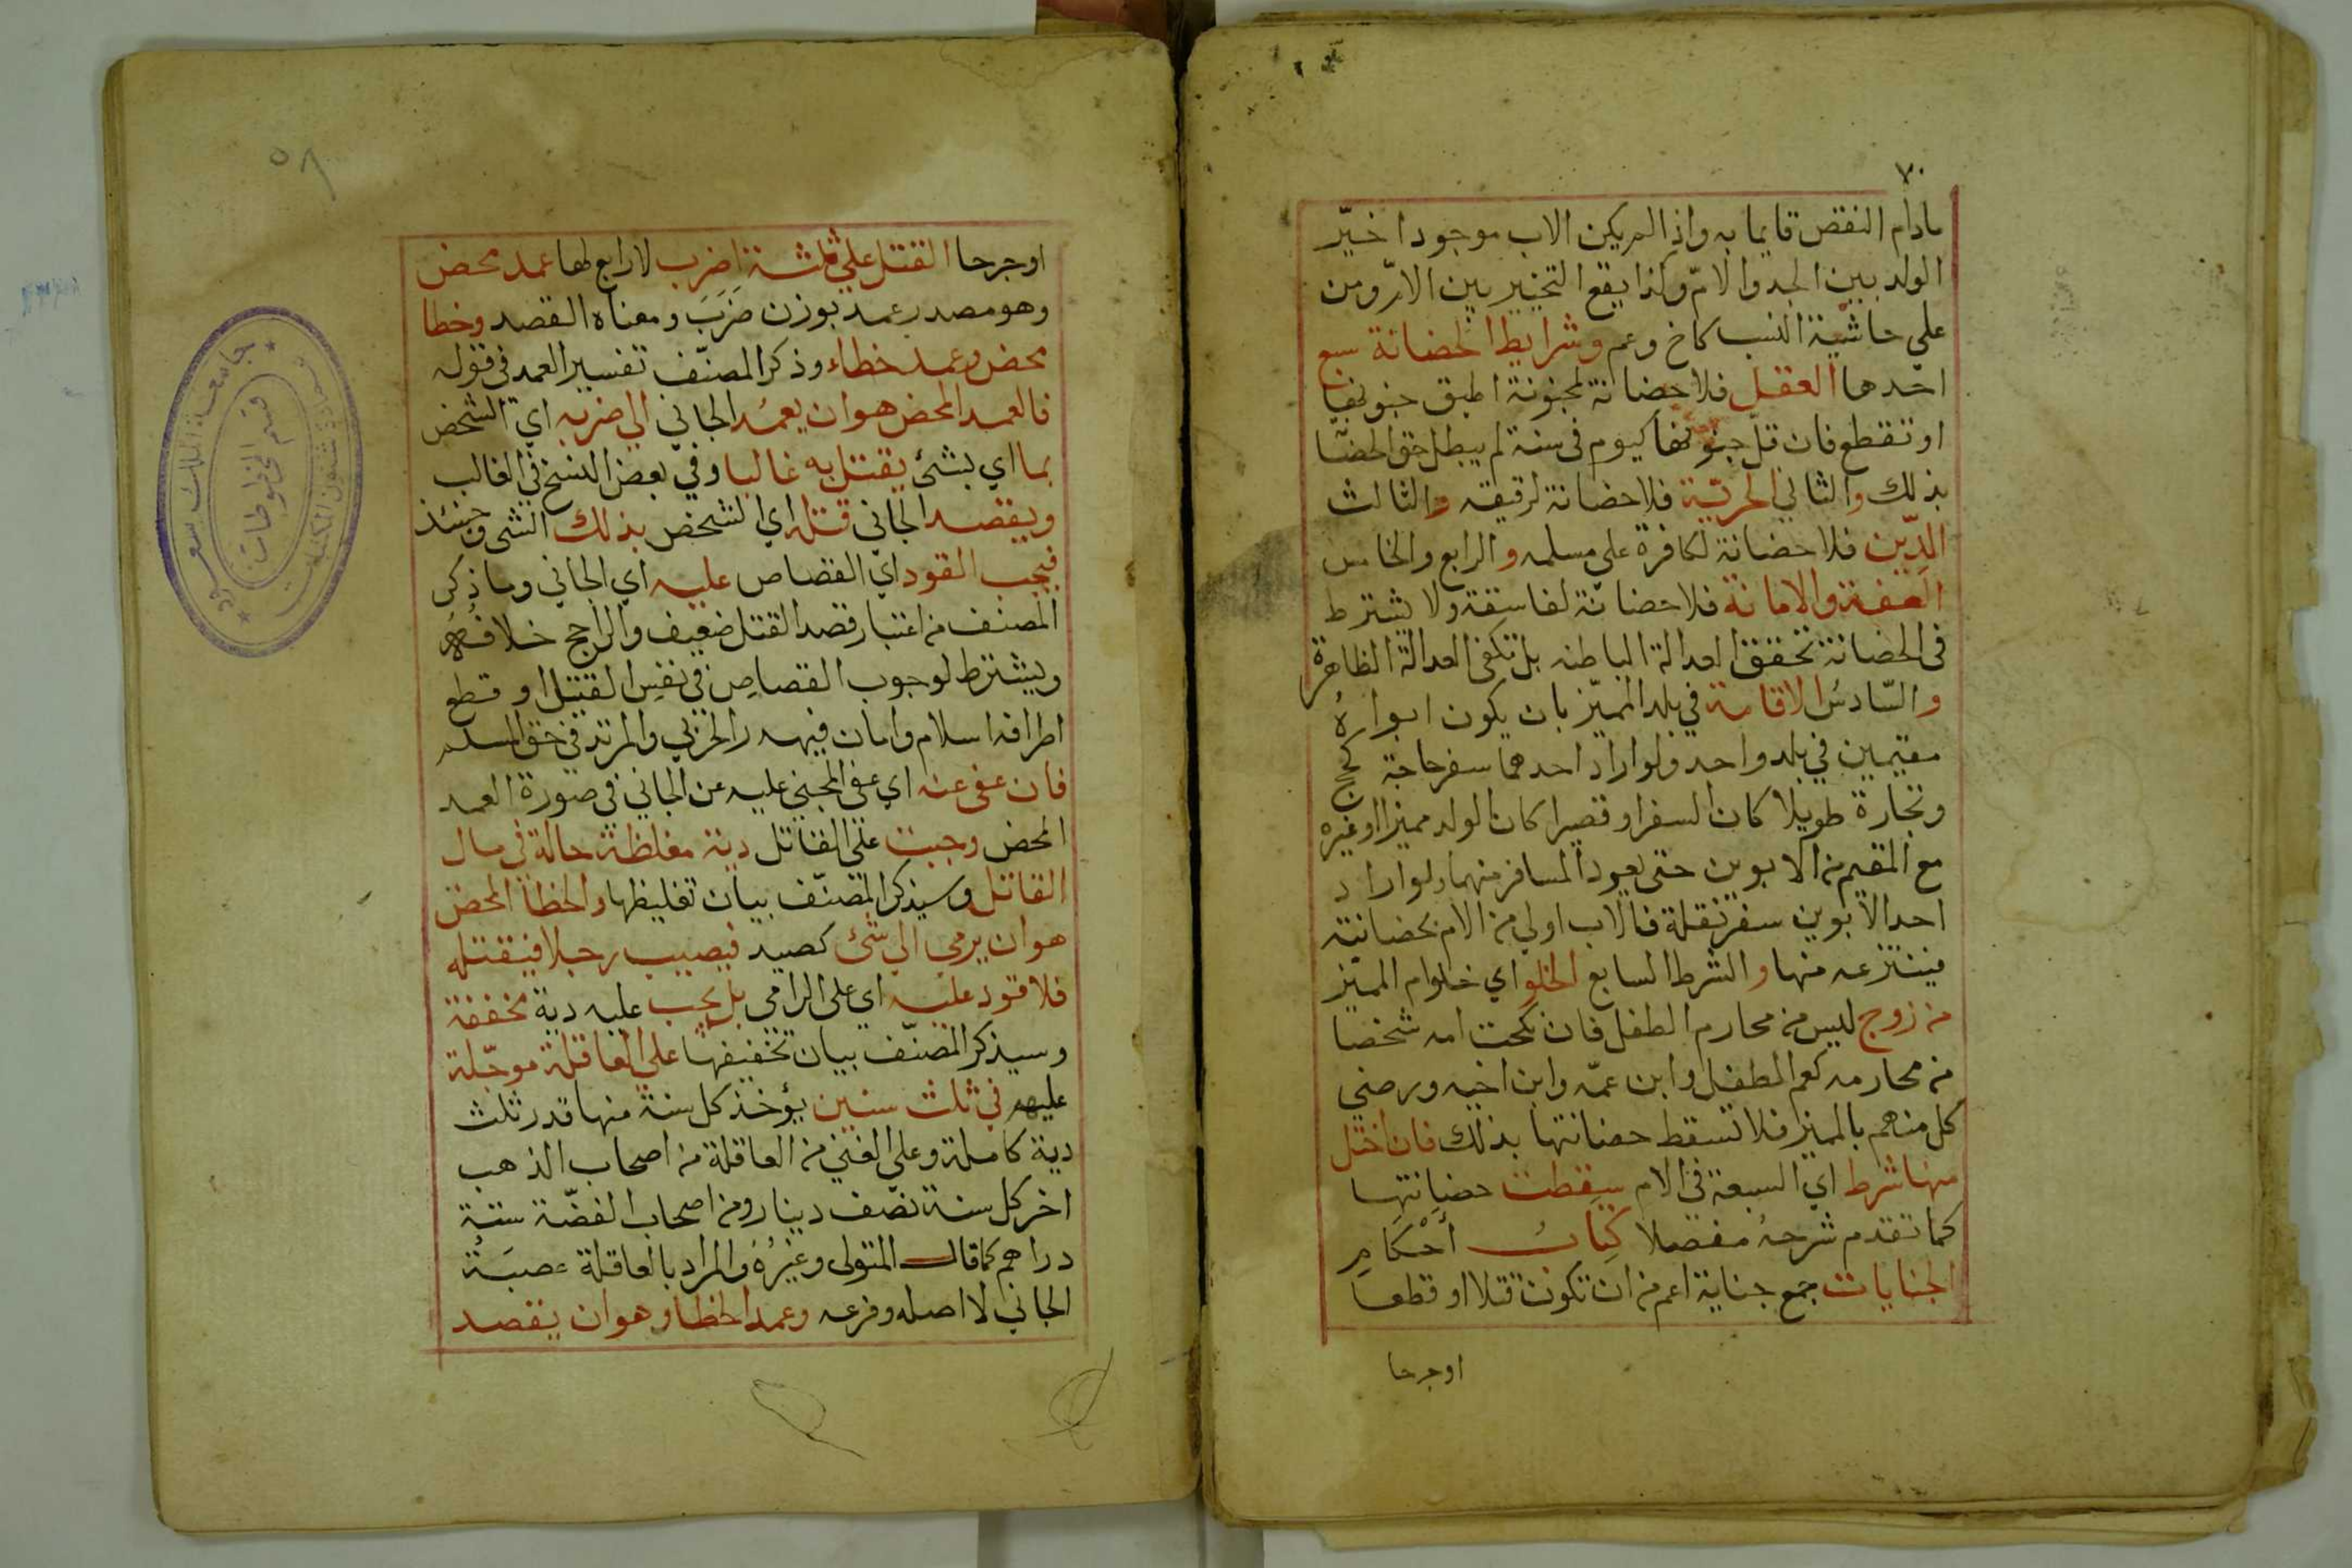 ٧٠
مادام النقص قايما به واذا لم يكن الاب موجودا خيّر
الولد بين الجد والامّ وكذا يقع التخيير بين الامّ ومن
علي حاشية النسب كاخ وعم وشرايط الحضانة سبع
احدها العقل فلا حضانة لمجنونة اطبق جنونها
او تقطع فان قلّ جنونها كيوم في سنة لم يبطل حق الحضا
بذلك والثاني الحرية فلا حضانة لرقيقه والثالث
الدّين فلا حضانة لكافرة علي مسلمه والرابع والخامس
العفة والامانة فلا حضانة لفاسقة ولا يشترط
في الحضانة تحقق العدالة الباطنه بل تكفي العدالة الظاهرة
والسّادسُ الاقامة في بلد المميّز بان يكون ابواهُ
مقيمين في بلد واحد ولو اراد احدهما سفر حاجة كحج
وتجارة طويلا كان السفر او قصيرا كان الولد مميزا او غيره
مع المقيم من الابوين حتى يعود المسافر منهما ولو اراد
احد الابوين سفر نقلة فالاب اولي من الام بحضانته
فينتزعه منها والشرط السابع الخلو اي خلو ام المميز
من زوج ليس من محارم الطفل فان نكحت امه شخصا
من محارمه كعم الطفل وابن عمّه وابن اخيه ورضي
كل منهم بالمميز فلا تسقط حضانتها بذلك فان اختل
منها شرط اي السبعة في الام سقطت حضانتها
كما تقدم شرحهُ مفصلا كتابُ أحكامِ
الجنايات جمع جناية اعم من ان تكون قتلا او قطعا
اوجرحا
٥٨
اوجرحا القتل علي ثلثة اضرب لا رابع لها عمد محض
وهو مصدر عمد بوزن ضَرَبَ ومعناه القصد وخطا
محض وعمد خطاء وذكر المصنّف تفسير العمد في قوله
فالعمد المحض هو ان يعمُد الجاني الي ضربه اي الشخص
بما اي بشئ يقتل به غالبا وفي بعض النسخ في الغالب
ويقصد الجاني قتله اي الشخص بذلك الشي وحينئذ
فيجب القود اي القصاص عليه اي الجاني وما ذكر
المصنف من اعتبار قصد القتل ضعيف والراجح خلافُهُ
ويشترط لوجوب القصاص في نفس القتل او قطع
اطرافه اسلام وامان فيهدر الحربي والمرتد في حق المسلم
فان عفي عنه اي عفي المجني عليه عن الجاني في صورة العمد
المحض وجبت علي القاتل دية مغلظة حالة في مال
القاتل وسيذكر المصنّف بيان تغليظها والخطأ المحض
هو ان يرمي الي شئ كصيد فيصيب رجلا فيقتله
فلا قود عليه اي علي الرامي بل يجب عليه دية مخففة
وسيذكر المصنّف بيان تخفيفها علي العاقلة موجّلة
عليهم في ثلث سنين يؤخذ كل سنة منها قدر ثلث
دية كاملة وعلي الغني من العاقلة من اصحاب الذهب
اخر كل سنة نصّف دينار ومن اصحاب الفضّة ستة
دراهم كما قال المتولي وغيرُهُ والمراد بالعاقلة عصبَةُ
الجاني لا اصله وفرعه وعمد الخطا وهو ان يقصد
جامعة الملك سعود
عمادة شئون المكتبات
قسم المخطوطات